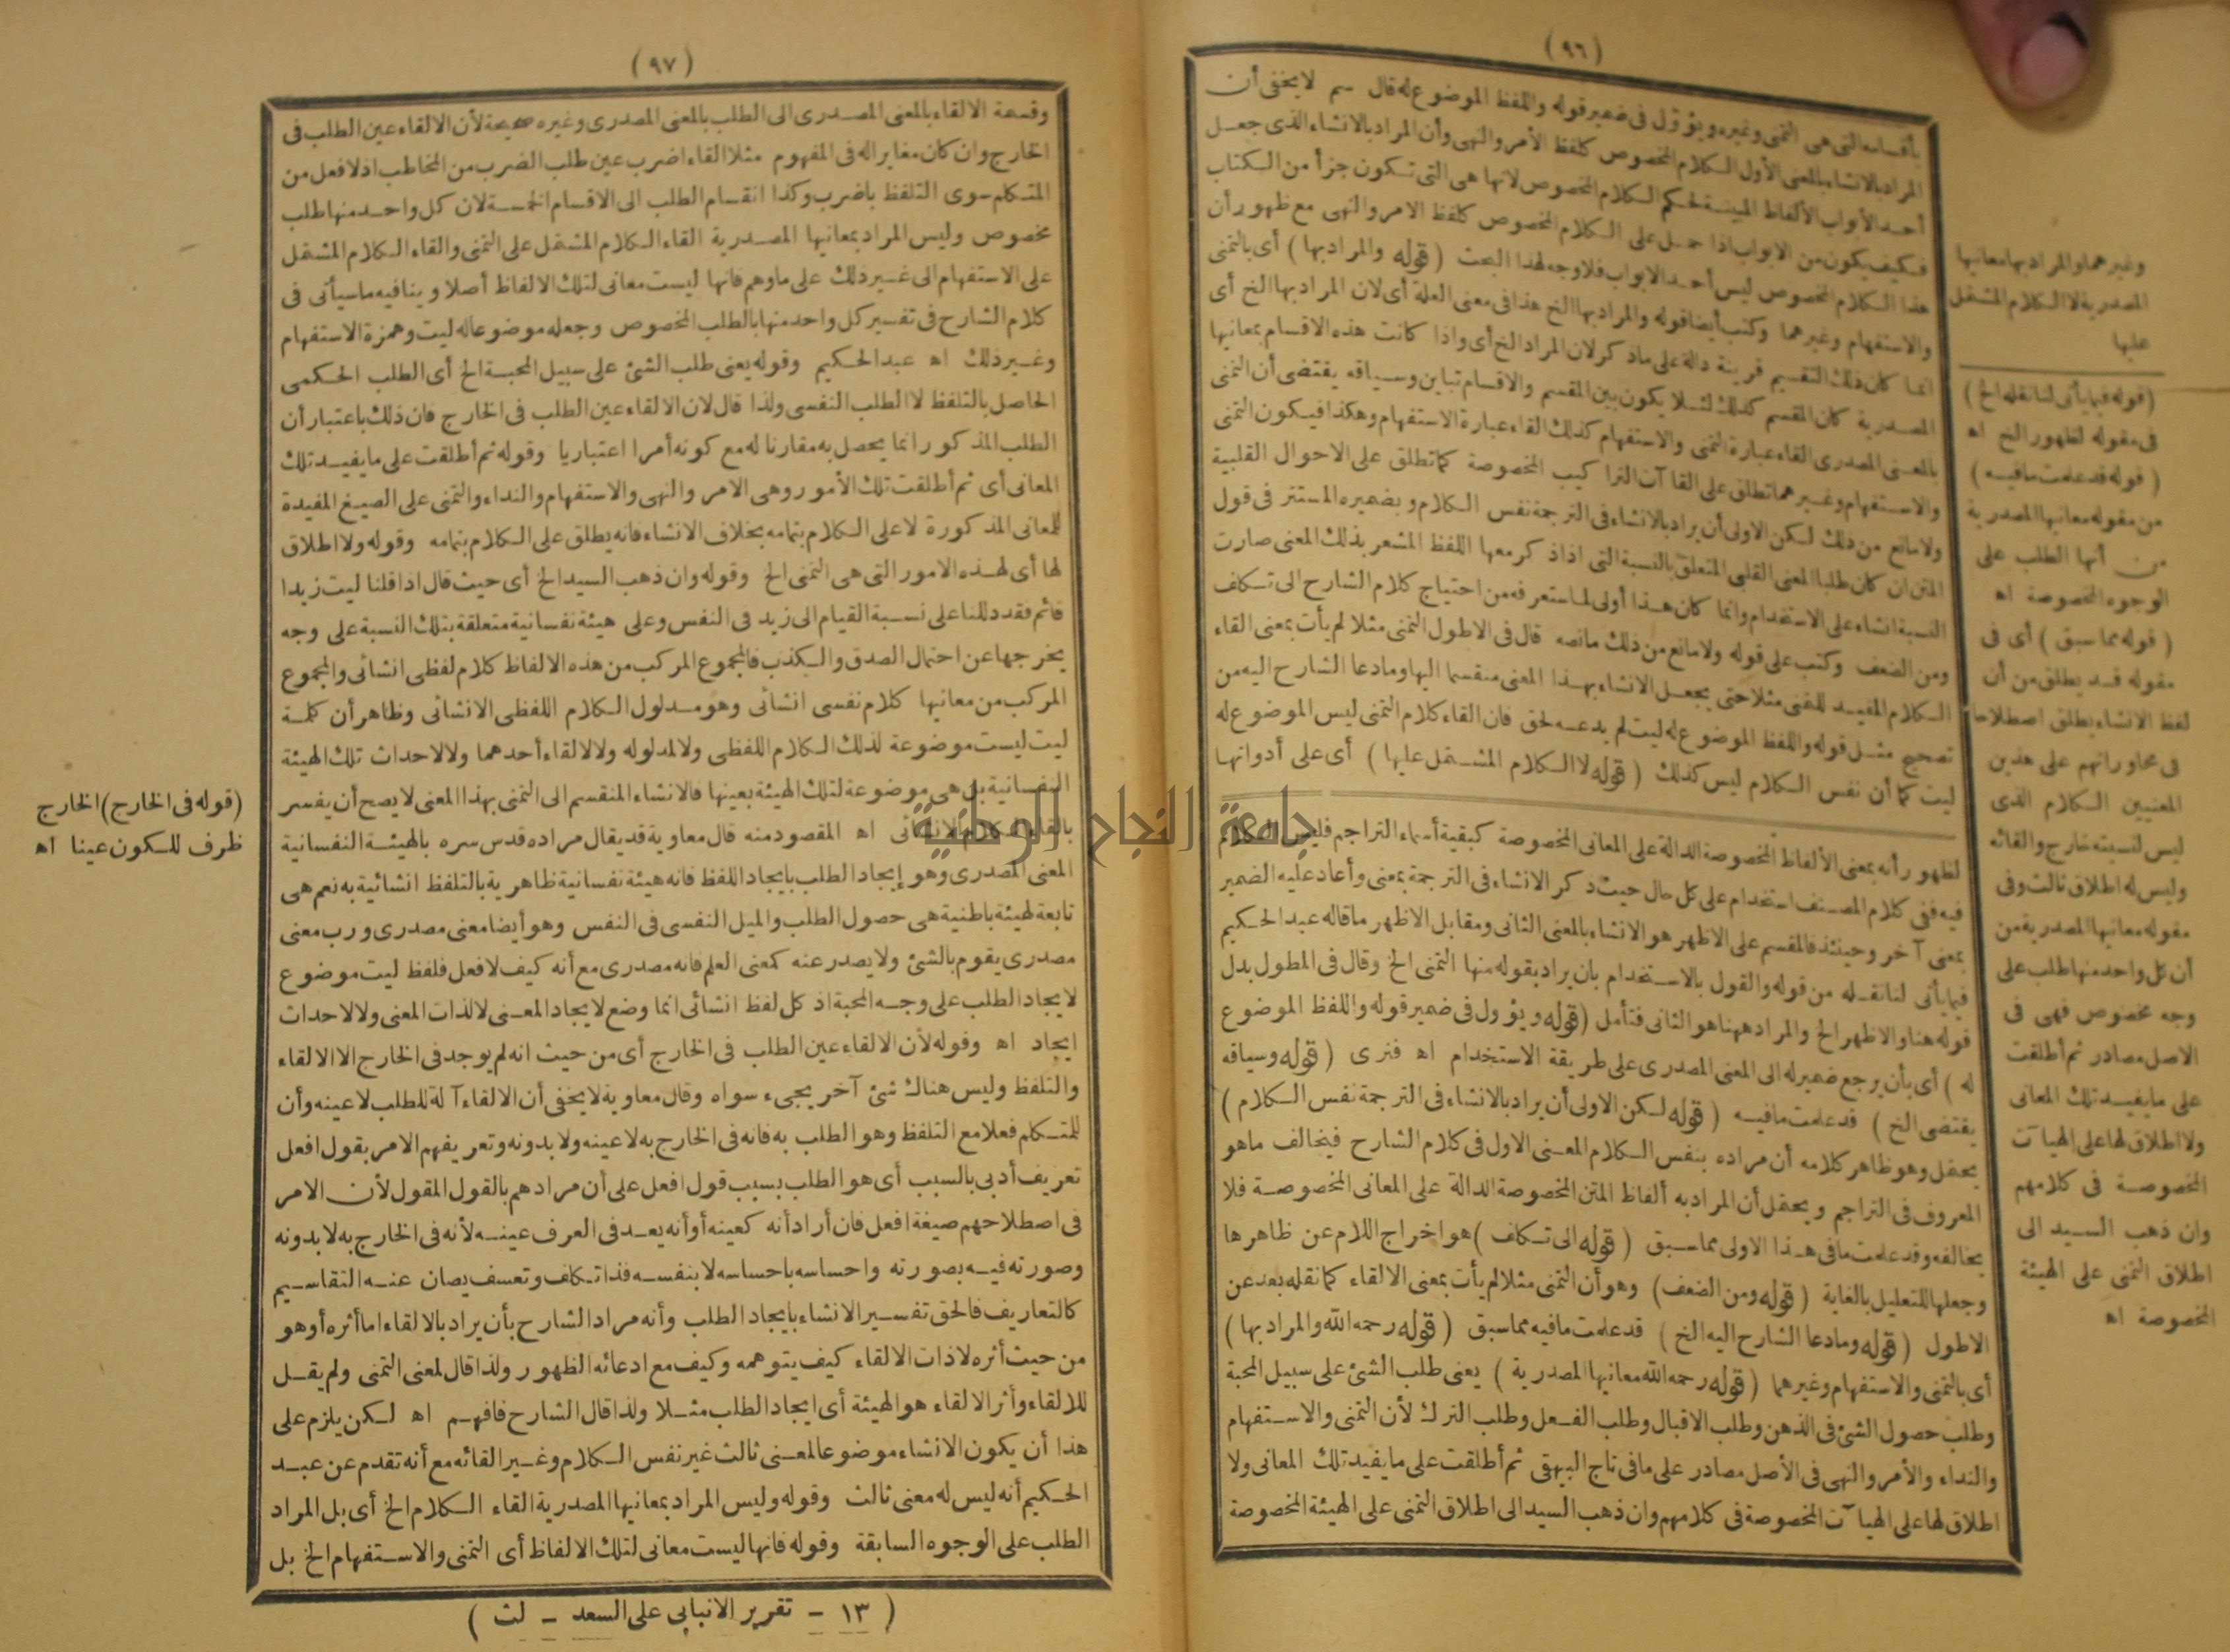 (٩٦)
بأقسامه التى هى التمنى وغيره ويؤوّل فى ضمير قوله واللفظ الموضوع له قال سم لا يخفى أن
المراد بالانشاء بالمعنى الأول الكلام المخصوص كلفظ الأمر والنهى وأن المراد بالانشاء الذى جعل
أحد الأبواب الألفاظ المبينة لحكم الكلام المخصوص لانها هى التى تكون جزأ من الكتاب
فكيف يكون من الابواب اذا حمل على الكلام المخصوص كلفظ الامر والنهى مع ظهور أن
هذا الكلام المخصوص ليس أحد الابواب فلا وجه لهذا البحث (قوله والمراد بها) أى بالتمنى
والاستفهام وغيرهما وكتب أيضا قوله والمراد بها الخ هذا فى معنى العلة أى لان المراد بها الخ أى
انما كان ذلك التقسيم قرينة دالة على ماذكر لان المراد الخ أى واذا كانت هذه الاقسام بمعانيها
المصدرية كان المقسم كذلك لئلا يكون بين المقسم والاقسام تباين وسياقه يقتضى أن التمنى
بالمعنى المصدرى القاء عبارة التمنى والاستفهام كذلك القاء عبارة الاستفهام وهكذا فيكون التمنى
والاستفهام وغيرهما تطلق على القاآت التراكيب المخصوصة كما تطلق على الاحوال القلبية
ولا مانع من ذلك لكن الاولى أن يراد بالانشاء فى الترجمة نفس الكلام وبضميره المستتر فى قول
المتن ان كان طلبا المعنى القلبى المتعلق بالنسبة التى اذا ذكر معها اللفظ المشعر بذلك المعنى صارت
النسبة انشاء على الاستخدام وانما كان هذا أولى لما ستعرفه من احتياج كلام الشارح الى تكلف
ومن الضعف وكتب على قوله ولا مانع من ذلك ما نصه قال فى الاطول التمنى مثلا لم يأت بمعنى القاء
الكلام المفيد للتمنى مثلا حتى يجعل الانشاء بهذا المعنى منقسما اليها وما دعا الشارح اليه من
تصحيح مثل قوله واللفظ الموضوع له ليت لم يدعه لحق فان القاء كلام التمنى ليس الموضوع له
ليت كما أن نفس الكلام ليس كذلك (قوله لا الكلام المشتمل عليها) أى على أدواتها
لظهور أنه بمعنى الألفاظ المخصوصة الدالة على المعانى المخصوصة كبقية أسماء التراجم فليس الكلام
فيه ففى كلام المصنف استخدام على كل حال حيث ذكر الانشاء فى الترجمة بمعنى وأعاد عليه الضمير
بمعنى آخر وحينئذ فالمقسم على الاظهر هو الانشاء بالمعنى الثانى ومقابل الاظهر ماقاله عبد الحكيم
فيما يأتى لنا نقله من قوله والقول بالاستخدام بان يراد بقوله منها التمنى الخ وقال فى المطول بدل
قوله هنا والاظهر الخ والمراد ههنا هو الثانى فتأمل (قوله ويؤول فى ضمير قوله واللفظ الموضوع
له) أى بأن يرجع ضميرله الى المعنى المصدرى على طريقة الاستخدام اه فنرى (قوله وسياقه
يقتضى الخ) قد علمت مافيه (قوله لكن الاولى أن يراد بالانشاء فى الترجمة نفس الكلام)
يحتمل وهو ظاهر كلامه أن مراده بنفس الكلام المعنى الاول فى كلام الشارح فيخالف ماهو
المعروف فى التراجم ويحتمل أن المراد به ألفاظ المتن المخصوصة الدالة على المعانى المخصوصة فلا
يخالفه وقد علمت مافى هذا الاولى مما سبق (قوله الى تكلف) هو اخراج اللام عن ظاهرها
وجعلها للتعليل بالغاية (قوله ومن الضعف) وهو أن التمنى مثلا لم يأت بمعنى الالقاء كما نقله بعد عن
الاطول (قوله وما دعا الشارح اليه الخ) قد علمت مافيه مما سبق (قوله رحمه الله والمراد بها)
أى بالتمنى والاستفهام وغيرهما (قوله رحمه الله معانيها المصدرية) يعنى طلب الشئ على سبيل المحبة
وطلب حصول الشئ فى الذهن وطلب الاقبال وطلب الفعل وطلب الترك لأن التمنى والاستفهام
والنداء والأمر والنهى فى الأصل مصادر على مافى تاج البيهقى ثم أطلقت على ما يفيد تلك المعانى ولا
اطلاق لها على الهيآت المخصوصة فى كلامهم وان ذهب السيد الى اطلاق التمنى على الهيئة المخصوصة
وغيرهما والمراد بها معانيها
المصدرية لا الكلام المشتمل
عليها
(قوله فيما يأتى لنا نقله الخ)
فى مقوله لظهور الخ اه
(قوله قد علمت مافيه)
من مقوله معانيها المصدرية
من أنها الطلب على
الوجوه المخصوصة اه
(قوله مما سبق) أى فى
مقوله قد يطلق من أن
لفظ الانشاء يطلق اصطلاحا
فى محاوراتهم على هذين
المعنيين الكلام الذى
ليس لنسبته خارج والقائه
وليس له اطلاق ثالث وفى
مقوله معانيها المصدرية من
أن كل واحد منها طلب على
وجه مخصوص فهى فى
الاصل مصادر ثم أطلقت
على ما يفيد تلك المعانى
ولا اطلاق لها على الهيآت
المخصوصة فى كلامهم
وان ذهب السيد الى
اطلاق التمنى على الهيئة
المخصوصة اه
(٩٧)
وقسمة الالقاء بالمعنى المصدرى الى الطلب بالمعنى المصدرى وغيره صحيحة لأن الالقاء عين الطلب فى
الخارج وان كان مغايرا له فى المفهوم مثلا القاء اضرب عين طلب الضرب من المخاطب اذ لا فعل من
المتكلم سوى التلفظ باضرب وكذا انقسام الطلب الى الاقسام الخمسة لان كل واحد منها طلب
مخصوص وليس المراد بمعانيها المصدرية القاء الكلام المشتمل على التمنى والقاء الكلام المشتمل
على الاستفهام الى غير ذلك على ماوهم فانها ليست معانى لتلك الالفاظ أصلا وينافيه ماسيأتى فى
كلام الشارح فى تفسير كل واحد منها بالطلب المخصوص وجعله موضوعا له ليت وهمزة الاستفهام
وغير ذلك اه عبد الحكيم وقوله يعنى طلب الشئ على سبيل المحبة الخ أى الطلب الحكمى
الحاصل بالتلفظ لا الطلب النفسى ولذا قال لان الالقاء عين الطلب فى الخارج فان ذلك باعتبار أن
الطلب المذكور انما يحصل به مقارنا له مع كونه أمرا اعتباريا وقوله ثم أطلقت على ما يفيد تلك
المعانى أى ثم أطلقت تلك الأمور وهى الامر والنهى والاستفهام والنداء والتمنى على الصيغ المفيدة
للمعانى المذكورة لا على الكلام بتمامه بخلاف الانشاء فانه يطلق على الكلام بتمامه وقوله ولا اطلاق
لها أى لهذه الامور التى هى التمنى الخ وقوله وان ذهب السيد الخ أى حيث قال اذا قلنا ليت زيدا
قائم فقد دللنا على نسبة القيام الى زيد فى النفس وعلى هيئة نفسانية متعلقة بتلك النسبة على وجه
يخرجها عن احتمال الصدق والكذب فالمجموع المركب من هذه الالفاظ كلام لفظى انشائى والمجموع
المركب من معانيها كلام نفسى انشائى وهو مدلول الكلام اللفظى الانشائى وظاهر أن كلمة
ليت ليست موضوعة لذلك الكلام اللفظى ولا لمدلوله ولا لالقاء أحدهما ولا لاحداث تلك الهيئة
النفسانية بل هى موضوعة لتلك الهيئة بعينها فالانشاء المنقسم الى التمنى بهذا المعنى لا يصح أن يفسر
بالقاء الكلام الانشائى اه المقصود منه قال معاوية قد يقال مراده قدس سره بالهيئة النفسانية
المعنى المصدرى وهو إيجاد الطلب بايجاد اللفظ فانه هيئة نفسانية ظاهرية بالتلفظ انشائية به نعم هى
تابعة لهيئة باطنية هى حصول الطلب والميل النفسى فى النفس وهو أيضا معنى مصدرى ورب معنى
مصدرى يقوم بالشئ ولا يصدر عنه كمعنى العلم فانه مصدرى مع أنه كيف لا فعل فلفظ ليت موضوع
لايجاد الطلب على وجه المحبة اذ كل لفظ انشائى انما وضع لايجاد المعنى لا لذات المعنى ولا لاحداث
ايجاد اه وقوله لأن الالقاء عين الطلب فى الخارج أى من حيث انه لم يوجد فى الخارج الا الالقاء
والتلفظ وليس هناك شئ آخر يجىء سواه وقال معاوية لا يخفى أن الالقاء آلة للطلب لا عينه وأن
للمتكلم فعلا مع التلفظ وهو الطلب به فانه فى الخارج به لا عينه ولا بدونه وتعريفهم الامر بقول افعل
تعريف أدبى بالسبب أى هو الطلب بسبب قول افعل على أن مرادهم بالقول المقول لأن الامر
فى اصطلاحهم صيغة افعل فان أراد أنه كعينه أو أنه يعد فى العرف عينه لأنه فى الخارج به لا بدونه
وصورته فيه بصورته واحساسه باحساسه لا بنفسه فذا تكلف وتعسف يصان عنه التقاسيم
كالتعاريف فالحق تفسير الانشاء بايجاد الطلب وأنه مراد الشارح بأن يراد بالالقاء اما أثره أو هو
من حيث أثره لا ذات الالقاء كيف يتوهمه وكيف مع ادعائه الظهور ولذا قال لمعنى التمنى ولم يقل
للالقاء وأثر الالقاء هو الهيئة أى ايجاد الطلب مثلا ولذا قال الشارح فافهم اه لكن يلزم على
هذا أن يكون الانشاء موضوعا لمعنى ثالث غير نفس الكلام وغير القائه مع أنه تقدم عن عبد
الحكيم أنه ليس له معنى ثالث وقوله وليس المراد بمعانيها المصدرية القاء الكلام الخ أى بل المراد
الطلب على الوجوه السابقة وقوله فانها ليست معانى لتلك الالفاظ أى التمنى والاستفهام الخ بل
(قوله فى الخارج) الخارج
ظرف للكون عينا اه
(١٣ - تقرير الانبابى على السعد - لث)
جامعة النجاح الوطنية